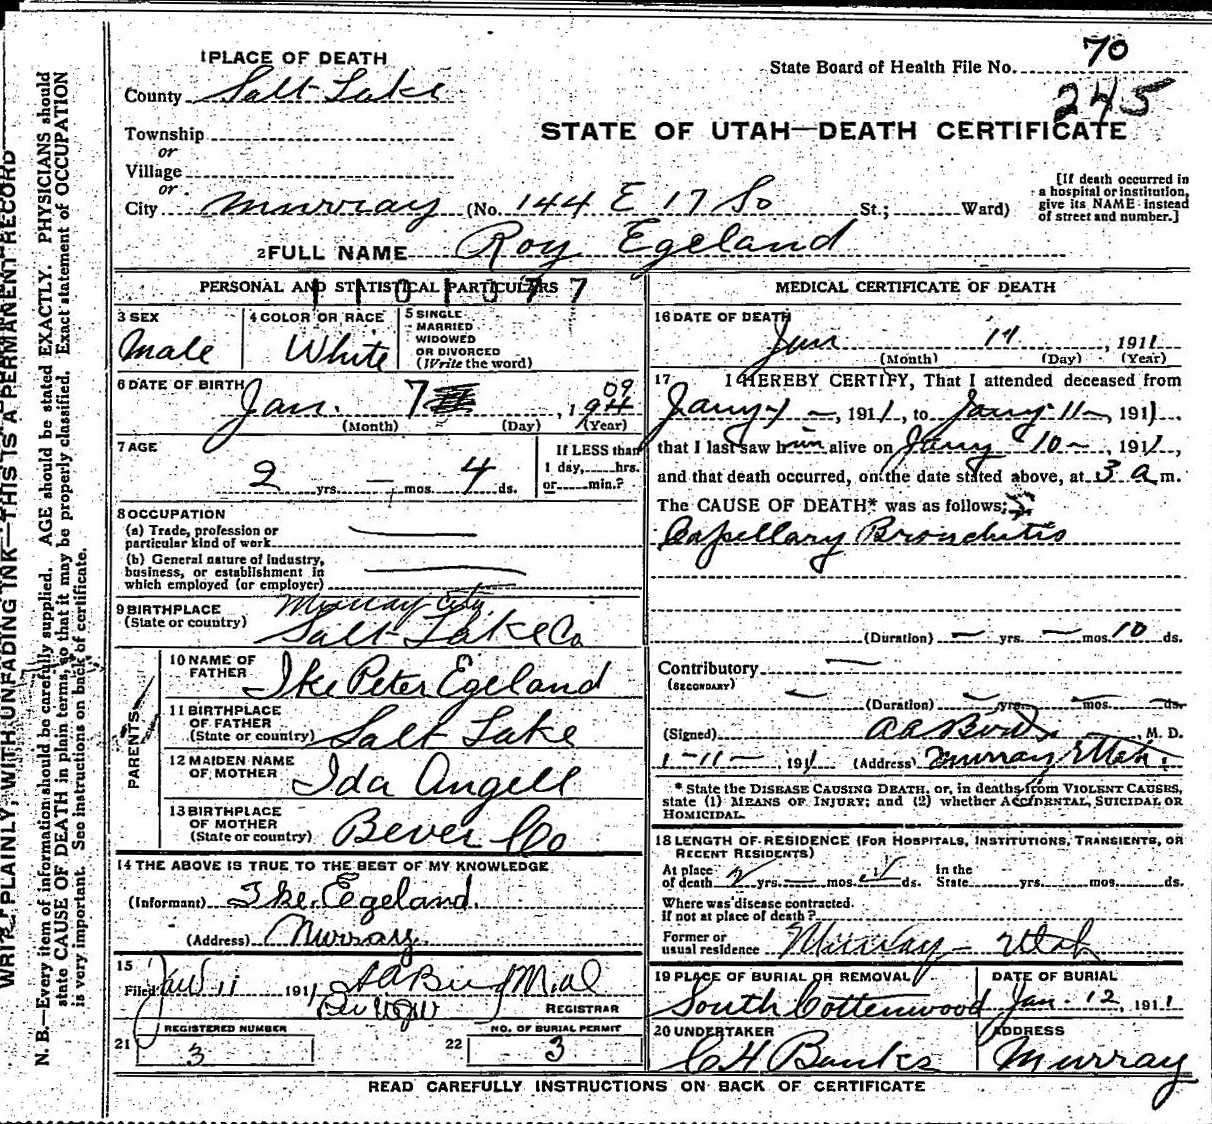 WRITE PLAINLY, WITH UNFADING INK—THIS IS A PERMANENT RECORD
N. B.—Every item of information should be carefully supplied. AGE should be stated EXACTLY. PHYSICIANS should
state CAUSE OF DEATH in plain terms, so that it may be properly classified. Exact statement of OCCUPATION
is very important. See instructions on back of certificate.
1 PLACE OF DEATH
State Board of Health File No. 70
245
County Salt Lake
STATE OF UTAH—DEATH CERTIFICATE
Township
or
Village
or
City Murray (No. 144 E 17 So St.; Ward)
[If death occurred in
a hospital or institution,
give its NAME instead
of street and number.]
2 FULL NAME Roy Egeland
PERSONAL AND STATISTICAL PARTICULARS
3 SEX
Male
4 COLOR OR RACE
White
5 SINGLE
MARRIED
WIDOWED
OR DIVORCED
(Write the word)
6 DATE OF BIRTH
Jan. 7, 1909
(Month) (Day) (Year)
7 AGE
2 yrs. — mos. 4 ds.
If LESS than
1 day, hrs.
or min.?
8 OCCUPATION
(a) Trade, profession or
particular kind of work —
(b) General nature of industry,
business, or establishment in
which employed (or employer) —
9 BIRTHPLACE
(State or country)
Murray City
Salt Lake Co
PARENTS
10 NAME OF
FATHER
Ike Peter Egeland
11 BIRTHPLACE
OF FATHER
(State or country)
Salt Lake
12 MAIDEN NAME
OF MOTHER
Ida Angell
13 BIRTHPLACE
OF MOTHER
(State or country)
Bever Co
14 THE ABOVE IS TRUE TO THE BEST OF MY KNOWLEDGE
(Informant) Ike Egeland
(Address) Murray
15
Filed Jan 11 1911
REGISTRAR
REGISTERED NUMBER
21 3
NO. OF BURIAL PERMIT
22 3
MEDICAL CERTIFICATE OF DEATH
16 DATE OF DEATH
Jan 11, 1911
(Month) (Day) (Year)
17 I HEREBY CERTIFY, That I attended deceased from
Jany 1 —, 1911, to Jany 11 —, 1911,
that I last saw him alive on Jany 10 —, 1911,
and that death occurred, on the date stated above, at 3 a m.
The CAUSE OF DEATH* was as follows:
Capellary Bronchitis
(Duration) — yrs. — mos. 10 ds.
Contributory —
(SECONDARY)
(Duration) — yrs. — mos. — ds.
(Signed) M. D.
1-11-, 1911 (Address) Murray Utah.
* State the DISEASE CAUSING DEATH, or, in deaths from VIOLENT CAUSES,
state (1) MEANS OF INJURY; and (2) whether ACCIDENTAL, SUICIDAL OR
HOMICIDAL.
18 LENGTH OF RESIDENCE (FOR HOSPITALS, INSTITUTIONS, TRANSIENTS, OR
RECENT RESIDENTS)
At place
of death 2 yrs. — mos. 4 ds.
In the
State yrs. mos. ds.
Where was disease contracted.
if not at place of death?
Former or
usual residence Murray — Utah
19 PLACE OF BURIAL OR REMOVAL
South Cottenwood
DATE OF BURIAL
Jan. 12, 1911
20 UNDERTAKER
C H Banks
ADDRESS
Murray
READ CAREFULLY INSTRUCTIONS ON BACK OF CERTIFICATE